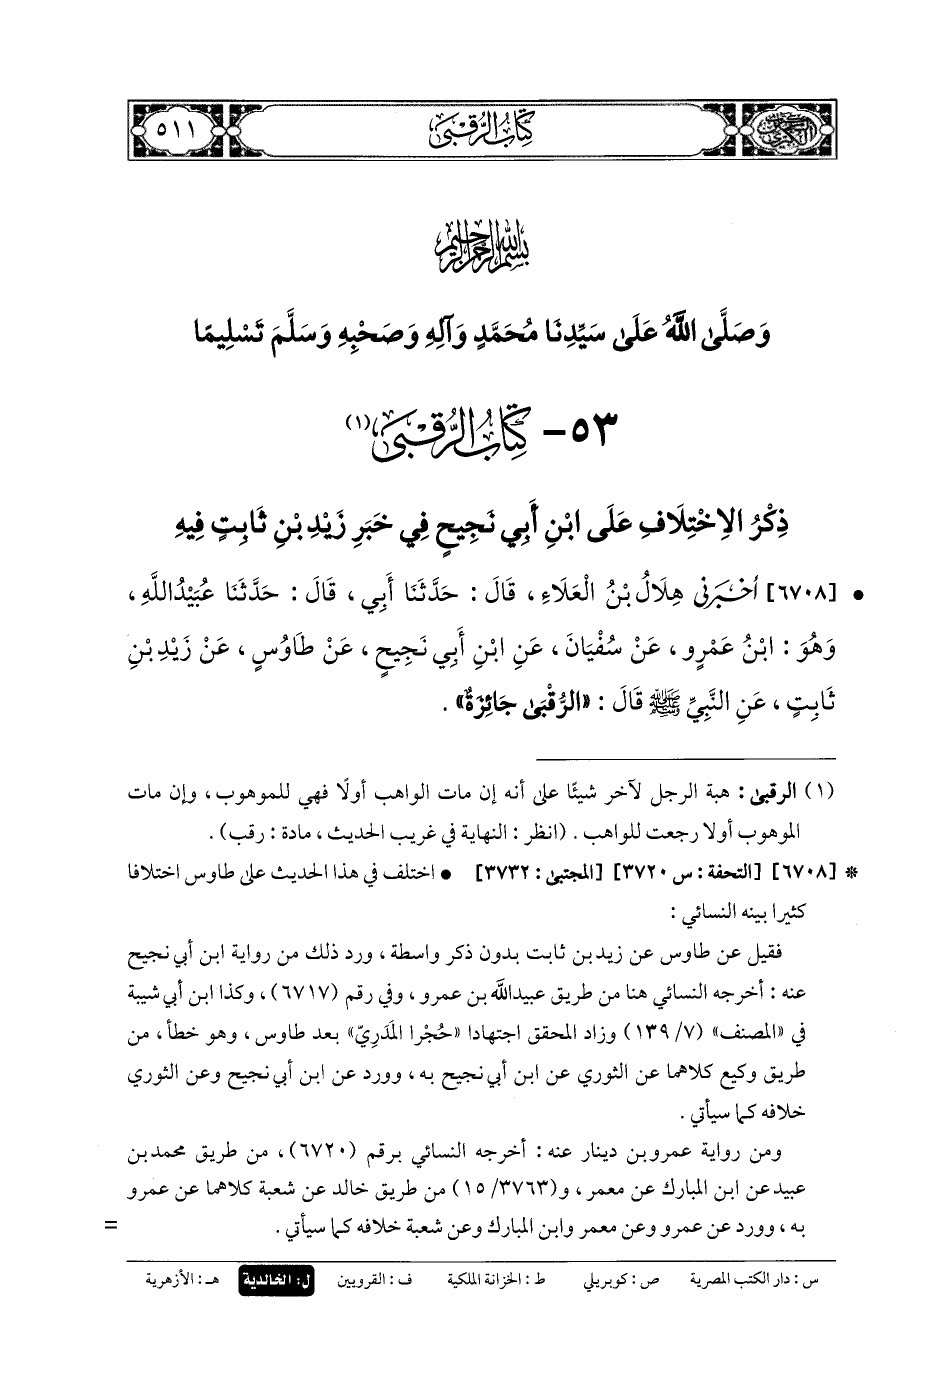 كتاب الرقبى
٥١١
بسم الله الرحمن الرحيم
وَصَلَّى اللَّهُ عَلَى سَيِّدِنَا مُحَمَّدٍ وَآلِهِ وَصَحْبِهِ وَسَلَّمَ تَسْلِيمًا
٥٣- كِتَابُ الرُّقْبَى (١)
ذِكْرُ الِاخْتِلَافِ عَلَى ابْنِ أَبِي نَجِيحٍ فِي خَبَرِ زَيْدِ بْنِ ثَابِتٍ فِيهِ
• [٦٧٠٨] أَخْبَرَنِي هِلَالُ بْنُ الْعَلَاءِ، قَالَ: حَدَّثَنَا أَبِي، قَالَ: حَدَّثَنَا عُبَيْدُاللَّهِ،
وَهُوَ: ابْنُ عَمْرٍو، عَنْ سُفْيَانَ، عَنِ ابْنِ أَبِي نَجِيحٍ، عَنْ طَاوُسٍ، عَنْ زَيْدِ بْنِ
ثَابِتٍ، عَنِ النَّبِيِّ ﷺ قَالَ: «الرُّقْبَى جَائِزَةٌ».
(١) الرقبى: هبة الرجل لآخر شيئًا على أنه إن مات الواهب أولًا فهي للموهوب، وإن مات
الموهوب أولا رجعت للواهب. (انظر: النهاية في غريب الحديث، مادة: رقب).
* [٦٧٠٨] [التحفة: س ٣٧٢٠] [المجتبى: ٣٧٣٢] • اختلف في هذا الحديث على طاوس اختلافا
كثيرا بينه النسائي:
فقيل عن طاوس عن زيد بن ثابت بدون ذكر واسطة، ورد ذلك من رواية ابن أبي نجيح
عنه: أخرجه النسائي هنا من طريق عبيدالله بن عمرو، وفي رقم (٦٧١٧)، وكذا ابن أبي شيبة
في «المصنف» (٧/ ١٣٩) وزاد المحقق اجتهادا «حُجْرا المَدَرِيّ» بعد طاوس، وهو خطأ، من
طريق وكيع كلاهما عن الثوري عن ابن أبي نجيح به، وورد عن ابن أبي نجيح وعن الثوري
خلافه كما سيأتي.
ومن رواية عمرو بن دينار عنه: أخرجه النسائي برقم (٦٧٢٠)، من طريق محمد بن
عبيد عن ابن المبارك عن معمر، و(٣٧٦٣/ ١٥) من طريق خالد عن شعبة كلاهما عن عمرو
به، وورد عن عمرو وعن معمر وابن المبارك وعن شعبة خلافه كما سيأتي. =
س: دار الكتب المصرية ص: كوبريلي ط: الخزانة الملكية ف: القرويين ل: الخالدية هـ: الأزهرية